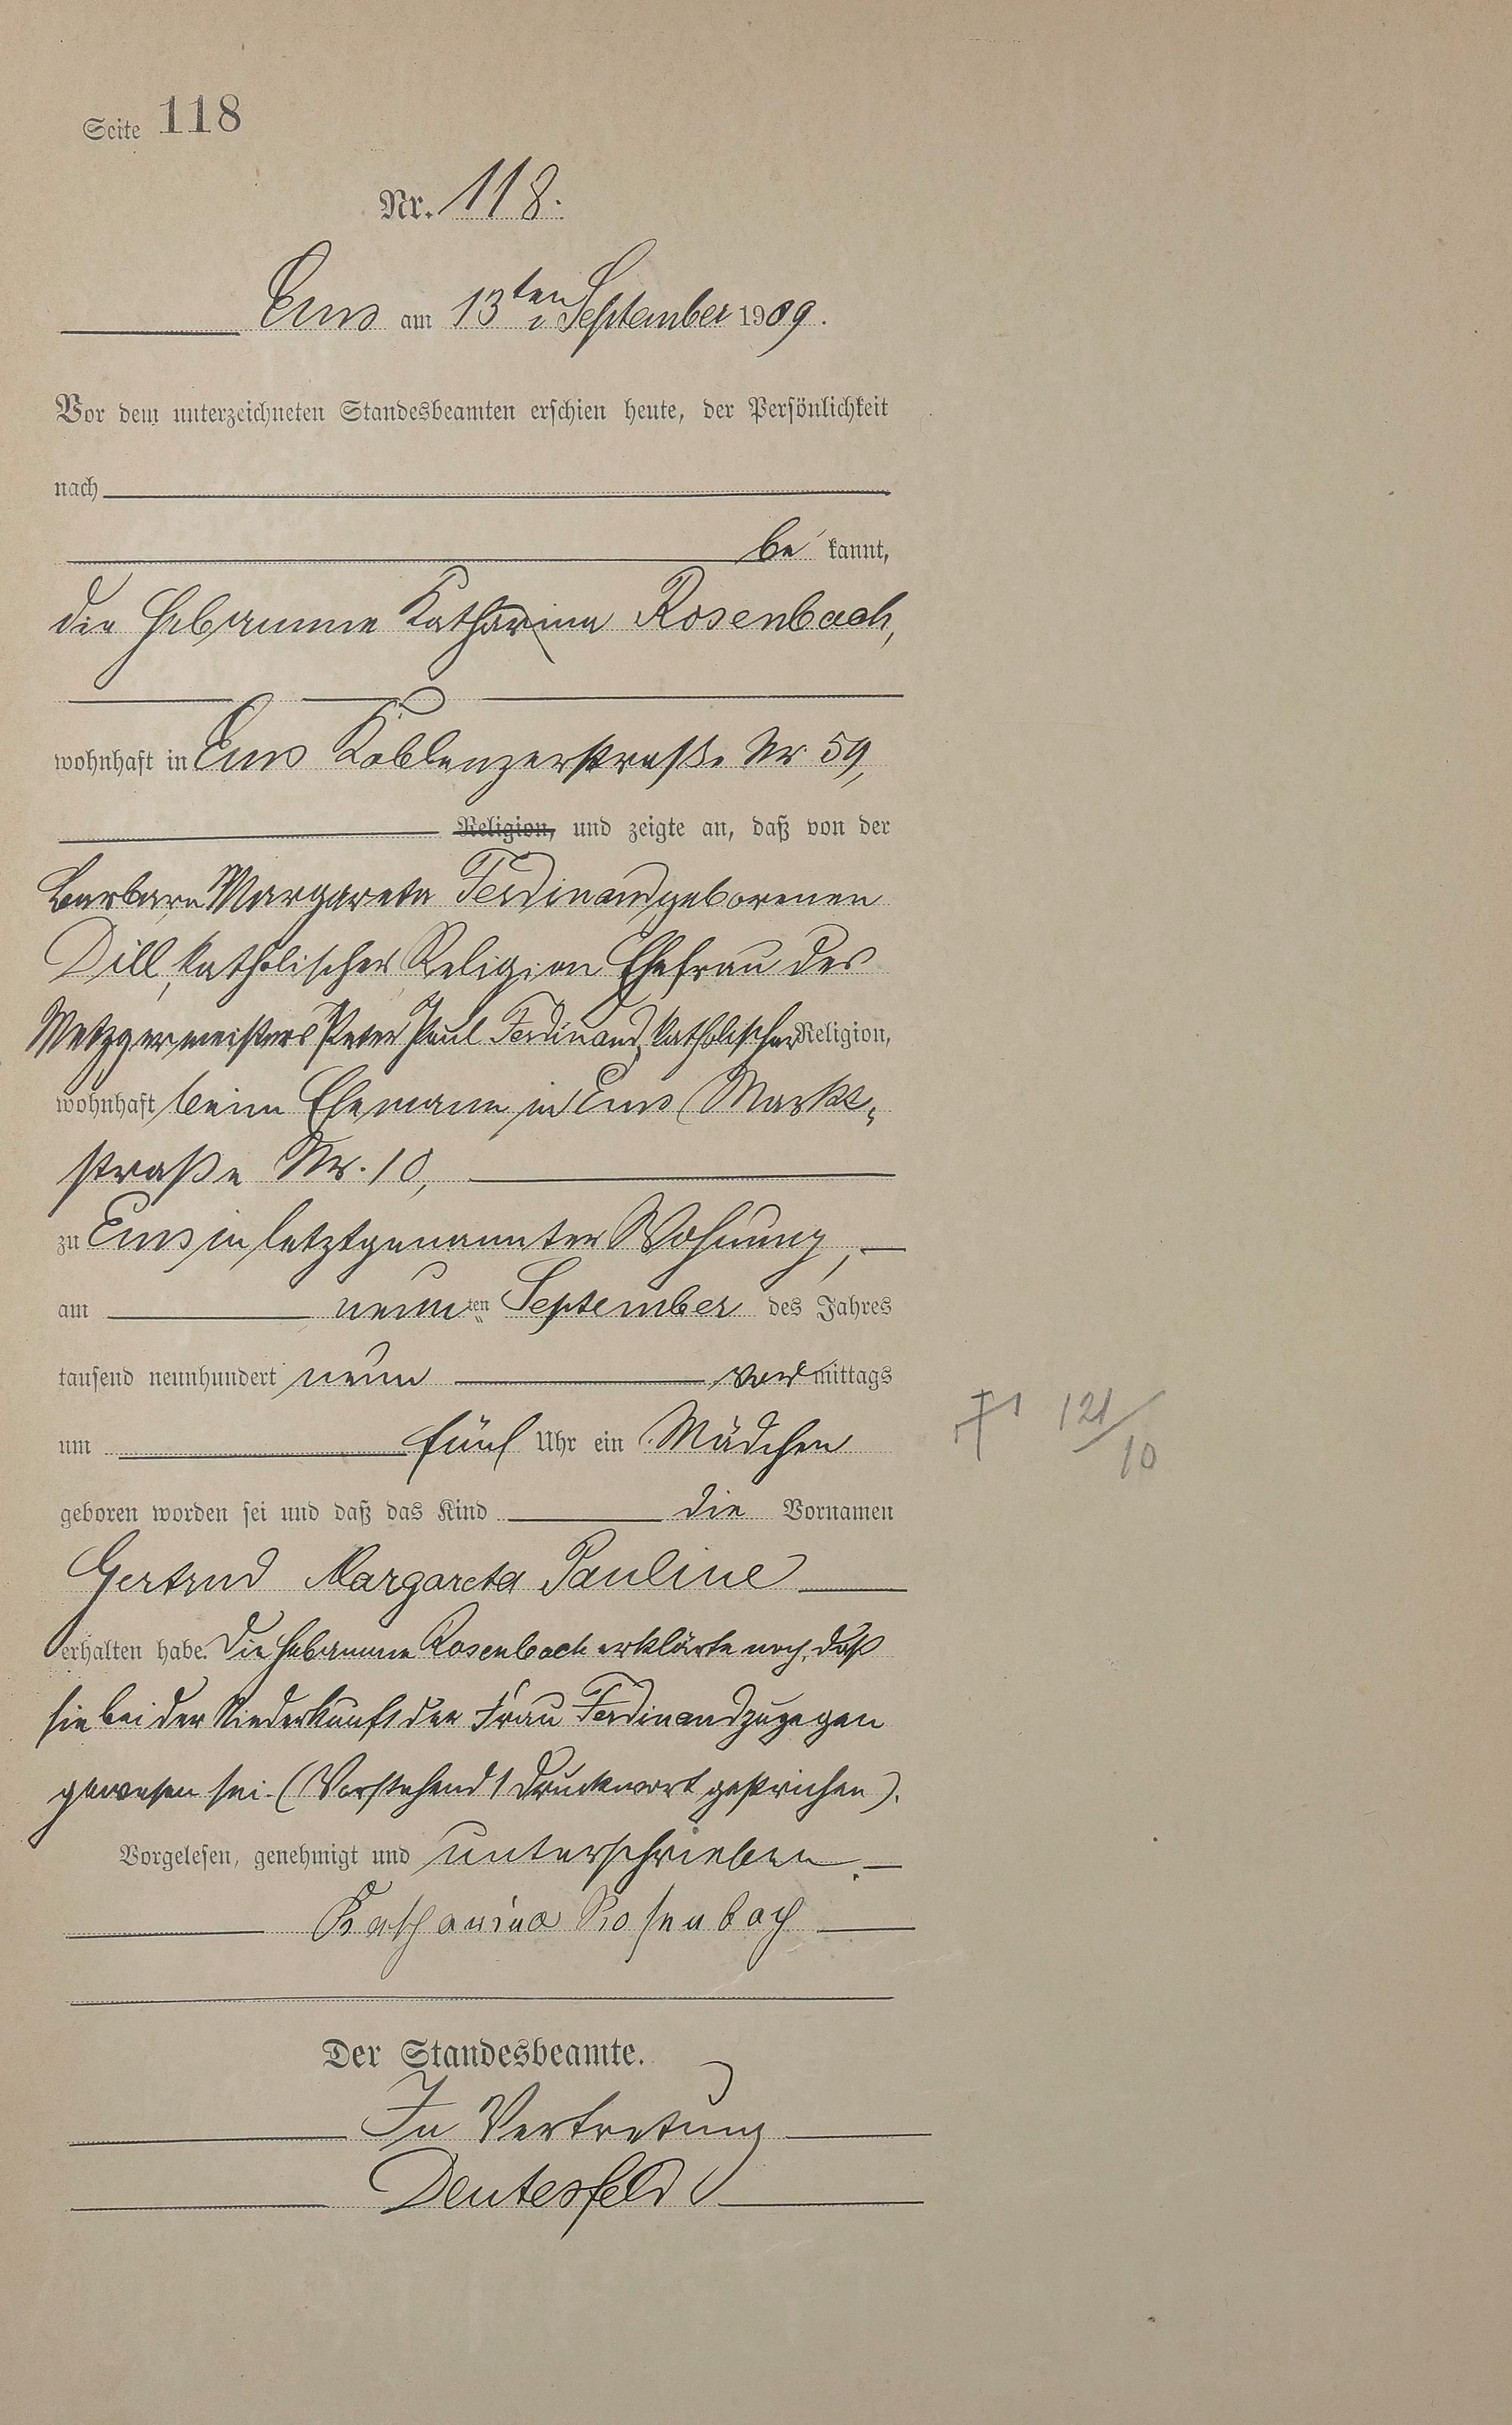 Seite 118
Nr. 118.
Ems am 13ten September 1909.
Vor dem unterzeichneten Standesbeamten erschien heute, der Persönlichkeit
nach
be kannt,
die Hebamme Katharina Rosenbach,
wohnhaft in Ems Koblenzerstraße Nr. 59,
Religion, und zeigte an, daß von der
Barbara Margareta Ferdinand geborenen
Dill, katholischer Religion Ehefrau des
Metzgermeisters Peter Paul Ferdinand, katholischer Religion,
wohnhaft beim Ehemann in Ems Markt-
straße Nr. 10,
zu Ems in letztgenannter Wohnung,
am neunten September des Jahres
tausend neunhundert neun vormittags
um fünf Uhr ein Mädchen
geboren worden sei und daß das Kind die Vornamen
Gertrud Margareta Pauline
erhalten habe. Die Hebamme Rosenbach erklärte noch, daß
sie bei der Niederkunft der Frau Ferdinand zugegen
gewesen sei. (Vorstehend 1 Druckwort gestrichen).
Vorgelesen, genehmigt und unterschrieben.
Katharina Rosenbach
Der Standesbeamte.
In Vertretung
Deutesfeld
121/10